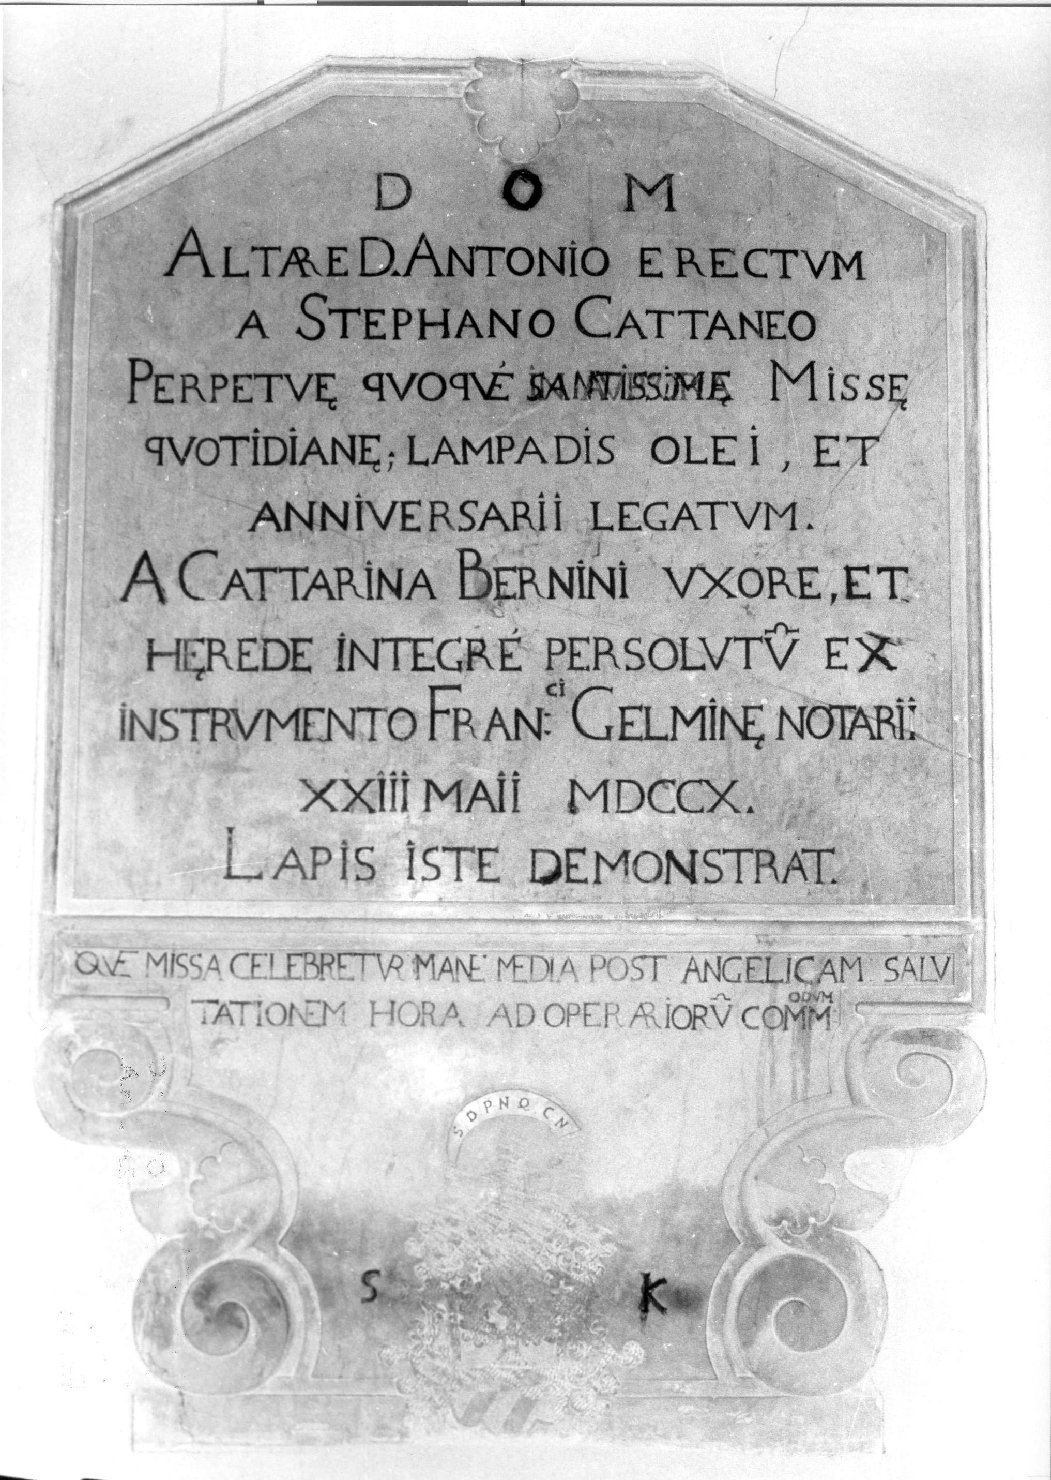 D O M
ALTARE D. ANTONIO ERECTVM
A STEPHANO CATTANEO
PERPETVĘ QVOQVÉ MISSĘ
QVOTIDIANĘ; LAMPADIS OLEI, ET
ANNIVERSARII LEGATVM.
A CATTARINA BERNINI VXORE, ET
HĘREDE INTEGRÉ PERSOLVTV̄ EX
INSTRVMENTO FRAN:CI GELMINĘ NOTARII:
XXIII MAII MDCCX.
LAPIS ISTE DEMONSTRAT.
QVE MISSA CELEBRETVR MANE MEDIA POST ANGELICAM SALV
TATIONEM HORA AD OPERARIORV̄ COMMODVM
S D P N Q C N
S K